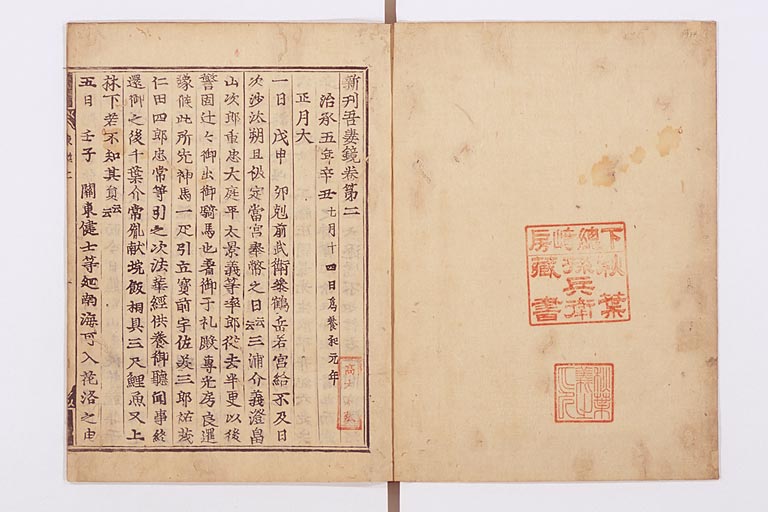 下總﨑房
秋葉孫兵衛
藏書
秋葉
義之
之印
新刊吾妻鏡卷第二
治承五年辛丑 七月十四日爲養和元年
正月大
一日 戊申 卯剋前武衛參鶴岳若宮給不及日
次沙汰朔旦被定當宮奉幣之日云云三浦介義澄畠
山次郎重忠大庭平太景義等率郎從去半更以後
警固辻々御出御騎馬也着御于礼殿專光房良暹
豫候此所先神馬一疋引立寳前宇佐美三郎祐茂
仁田四郎忠常等引之次法華經供養御聽聞事終
還御之後千葉介常胤献埦飯相具三尺鯉魚又上
林下若不知其員云云
五日 壬子 關東健士等廻南海可入花洛之由